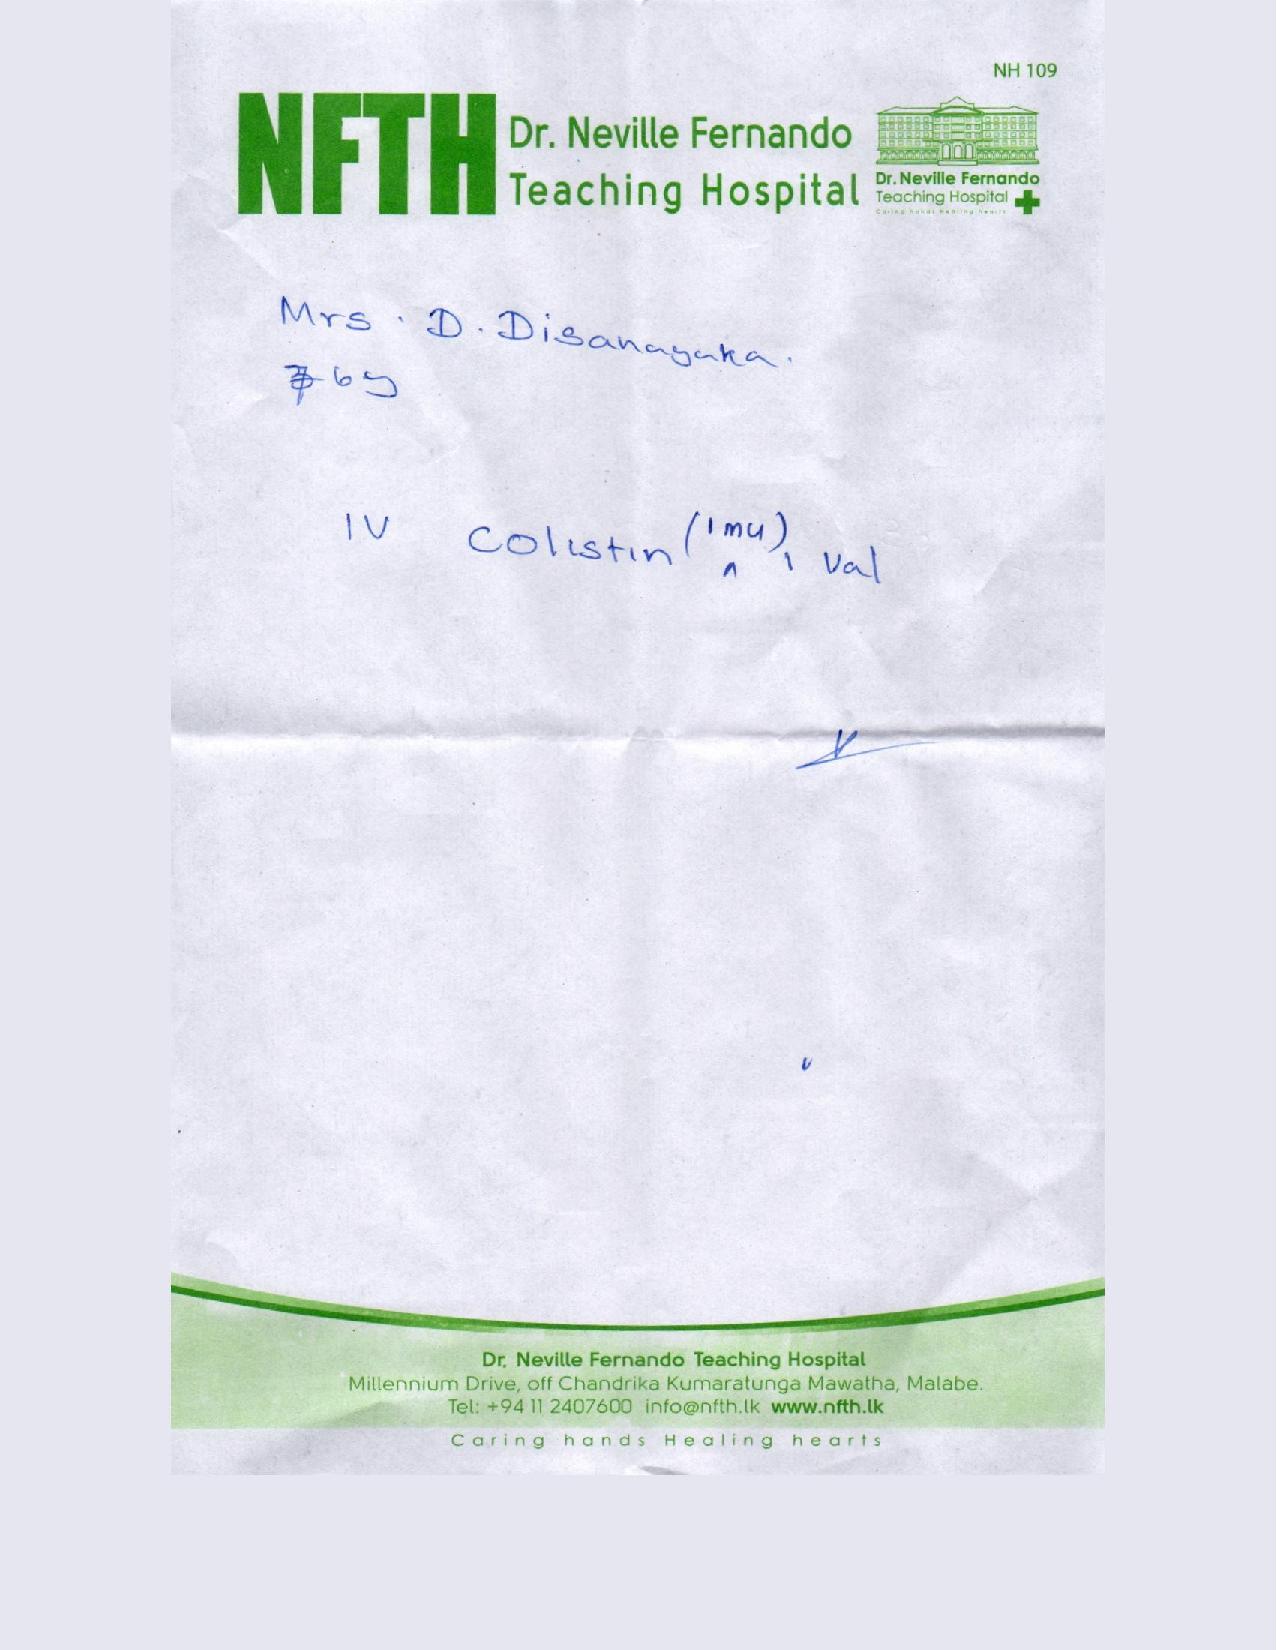 NH 109
NFTH Dr. Neville Fernando
Teaching Hospital
Dr. Neville Fernando
Teaching Hospital
Caring hands Healing hearts
Mrs. D. Disanayaka.
6y
IV Colistin (1 mu) 1 Val
Dr. Neville Fernando Teaching Hospital
Millennium Drive, off Chandrika Kumaratunga Mawatha, Malabe.
Tel: +94 11 2407600 info@nfth.lk www.nfth.lk
Caring hands Healing hearts